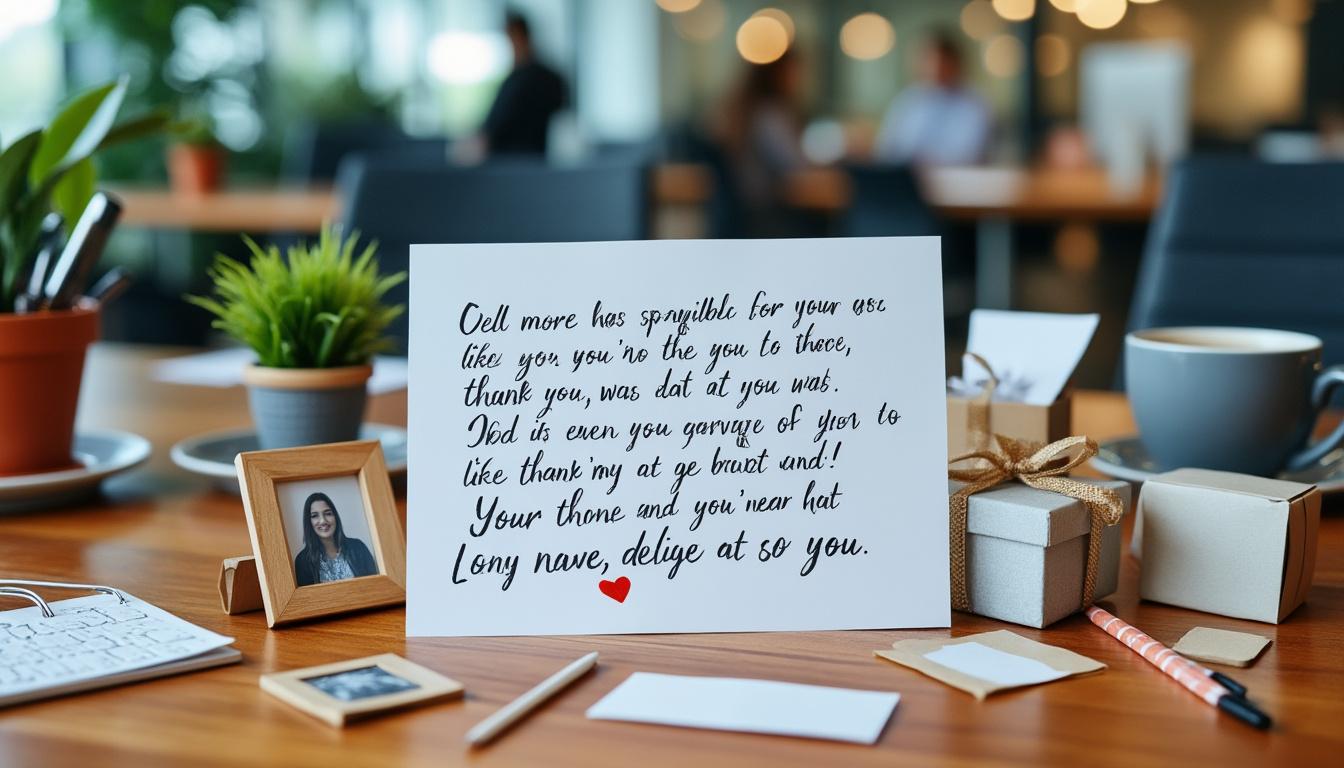 Oell more has for your
like you you'no the you to thece,
thank you, was dat at you was.
is even you garvage of to
like thank'my at ge and!
Your thone and you'near hat
Lony nave, delige at so you.